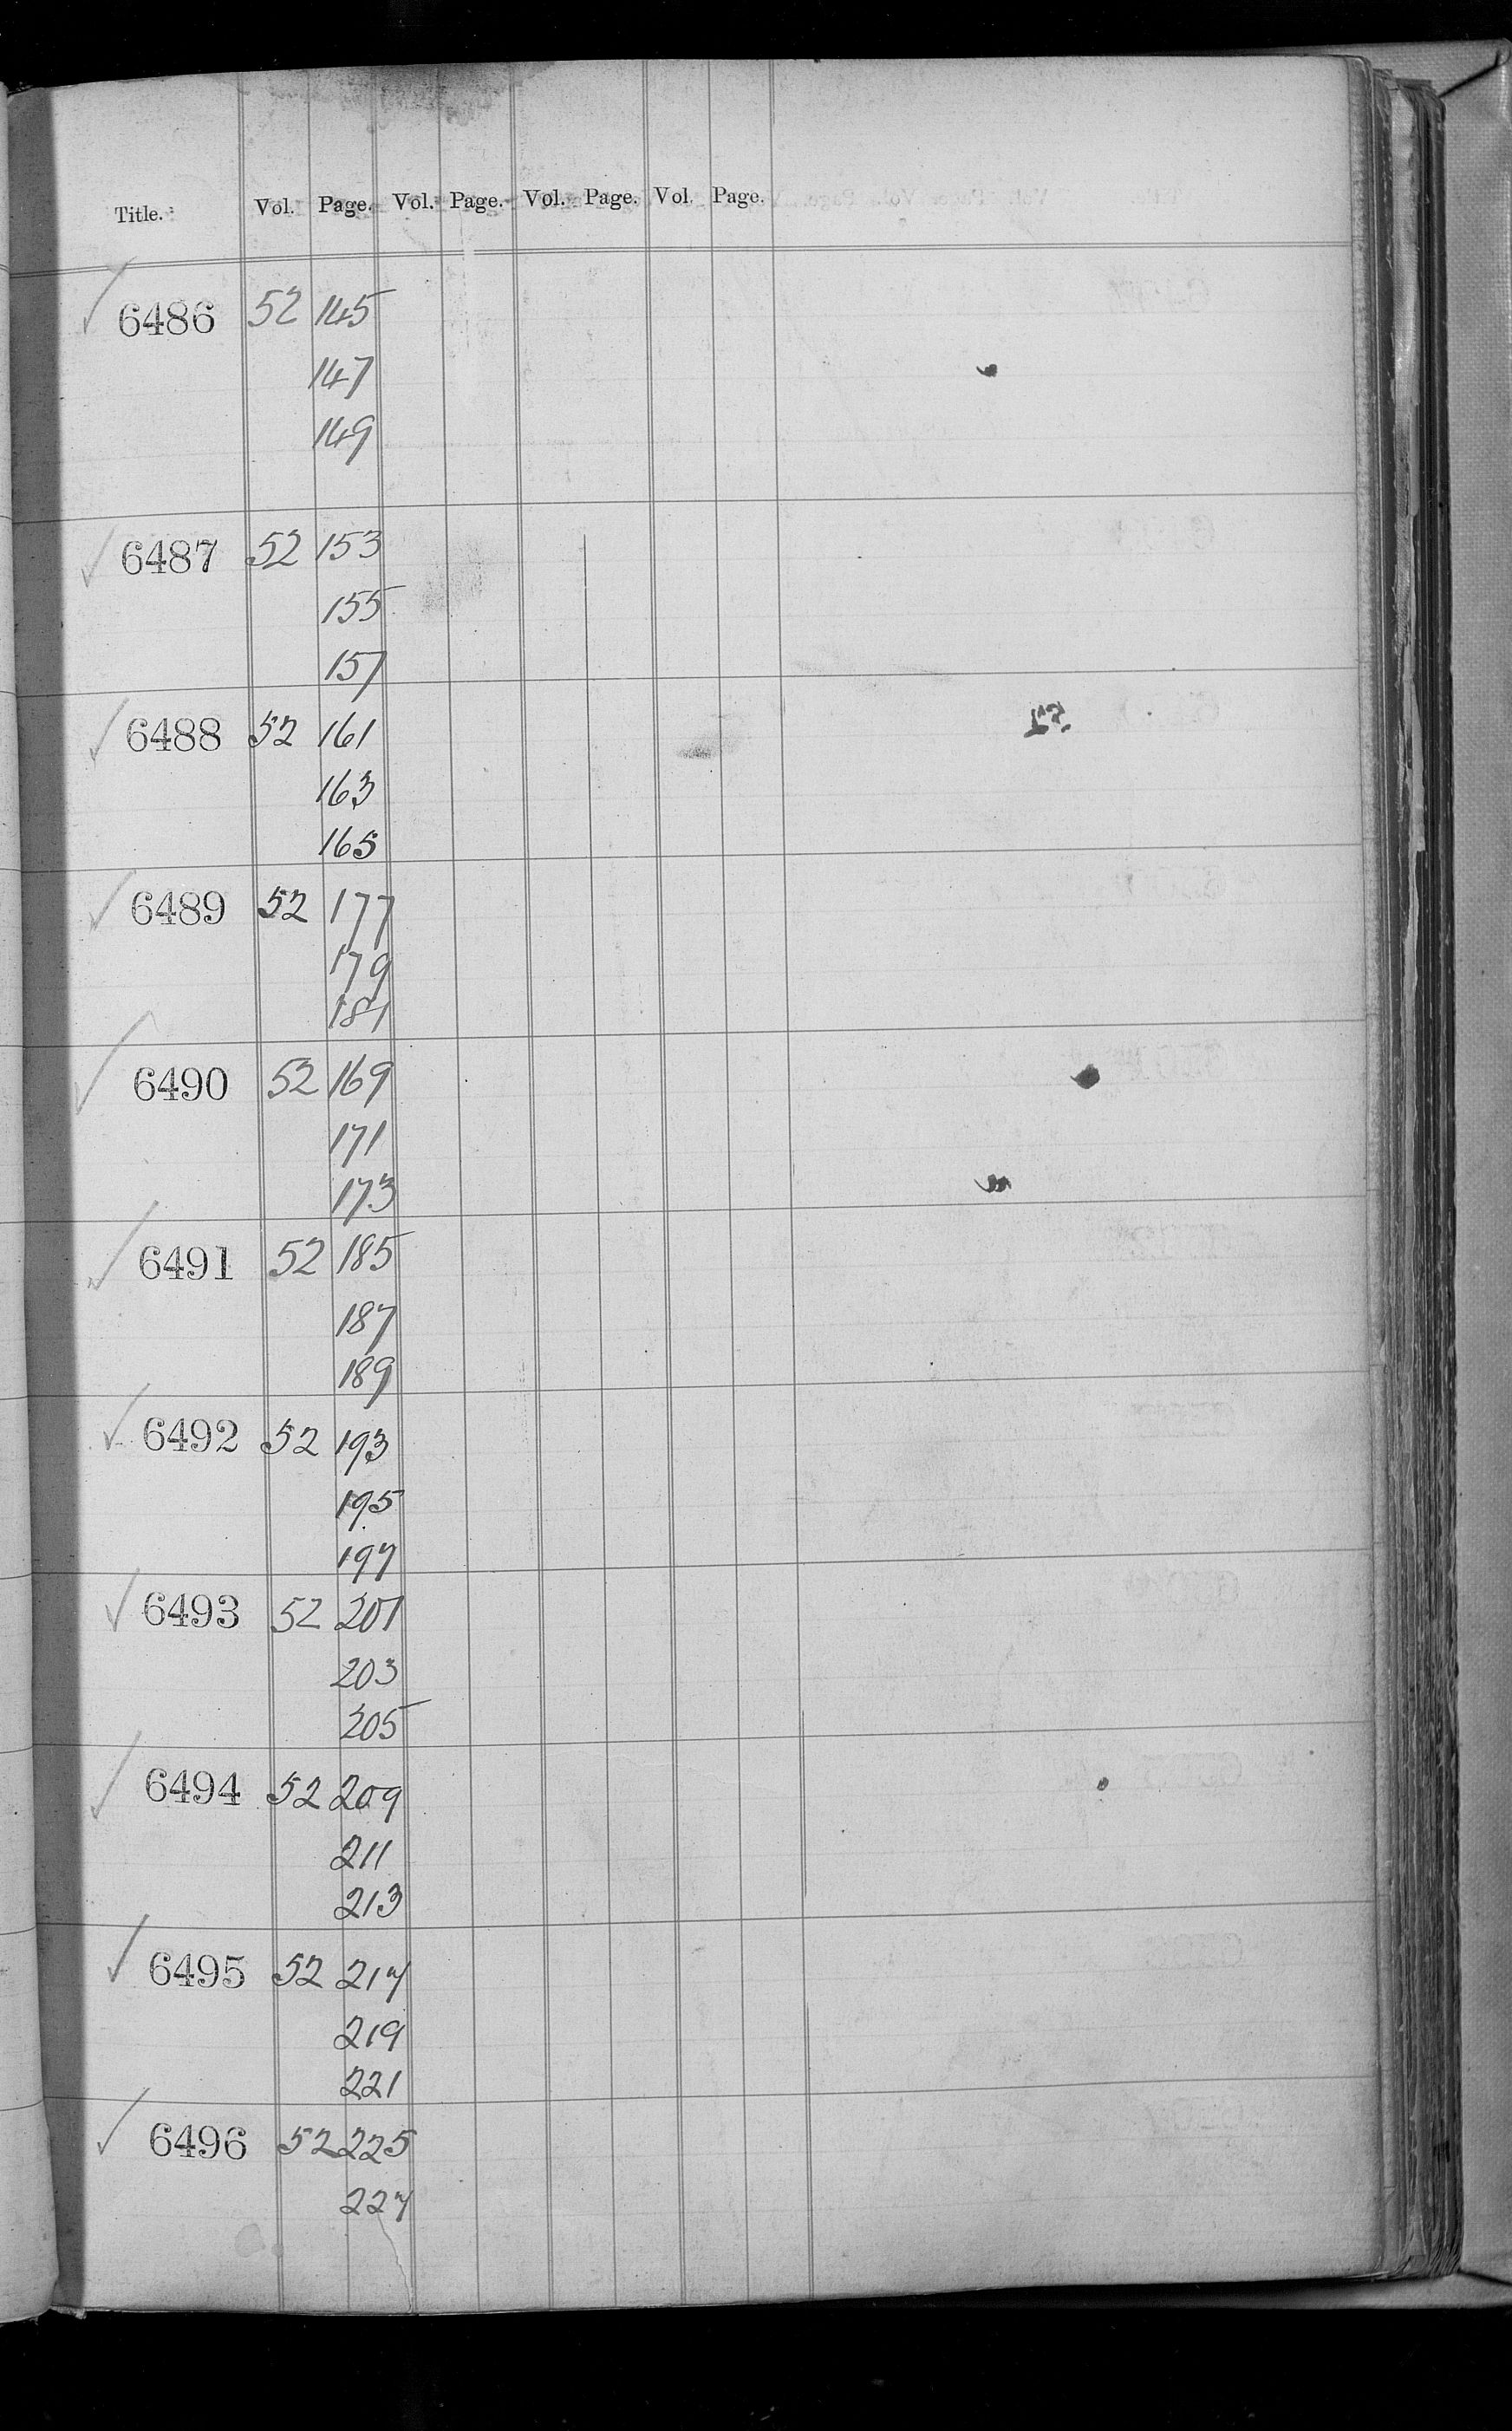 Title. Vol. Page. Vol. Page. Vol. Page. Vol. Page.
6486 52 145
147
149
6487 52 153
155
157
6488 52 161
163
165
6489 52 177
179
181
6490 52 169
171
173
6491 52 185
187
189
6492 52 193
195
197
6493 52 201
203
205
6494 52 209
211
213
6495 52 217
219
221
6496 52 225
227